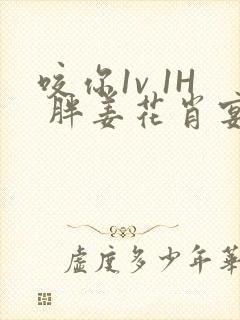 咬你1v1H
胖姜花肖宴
虚度多少年華